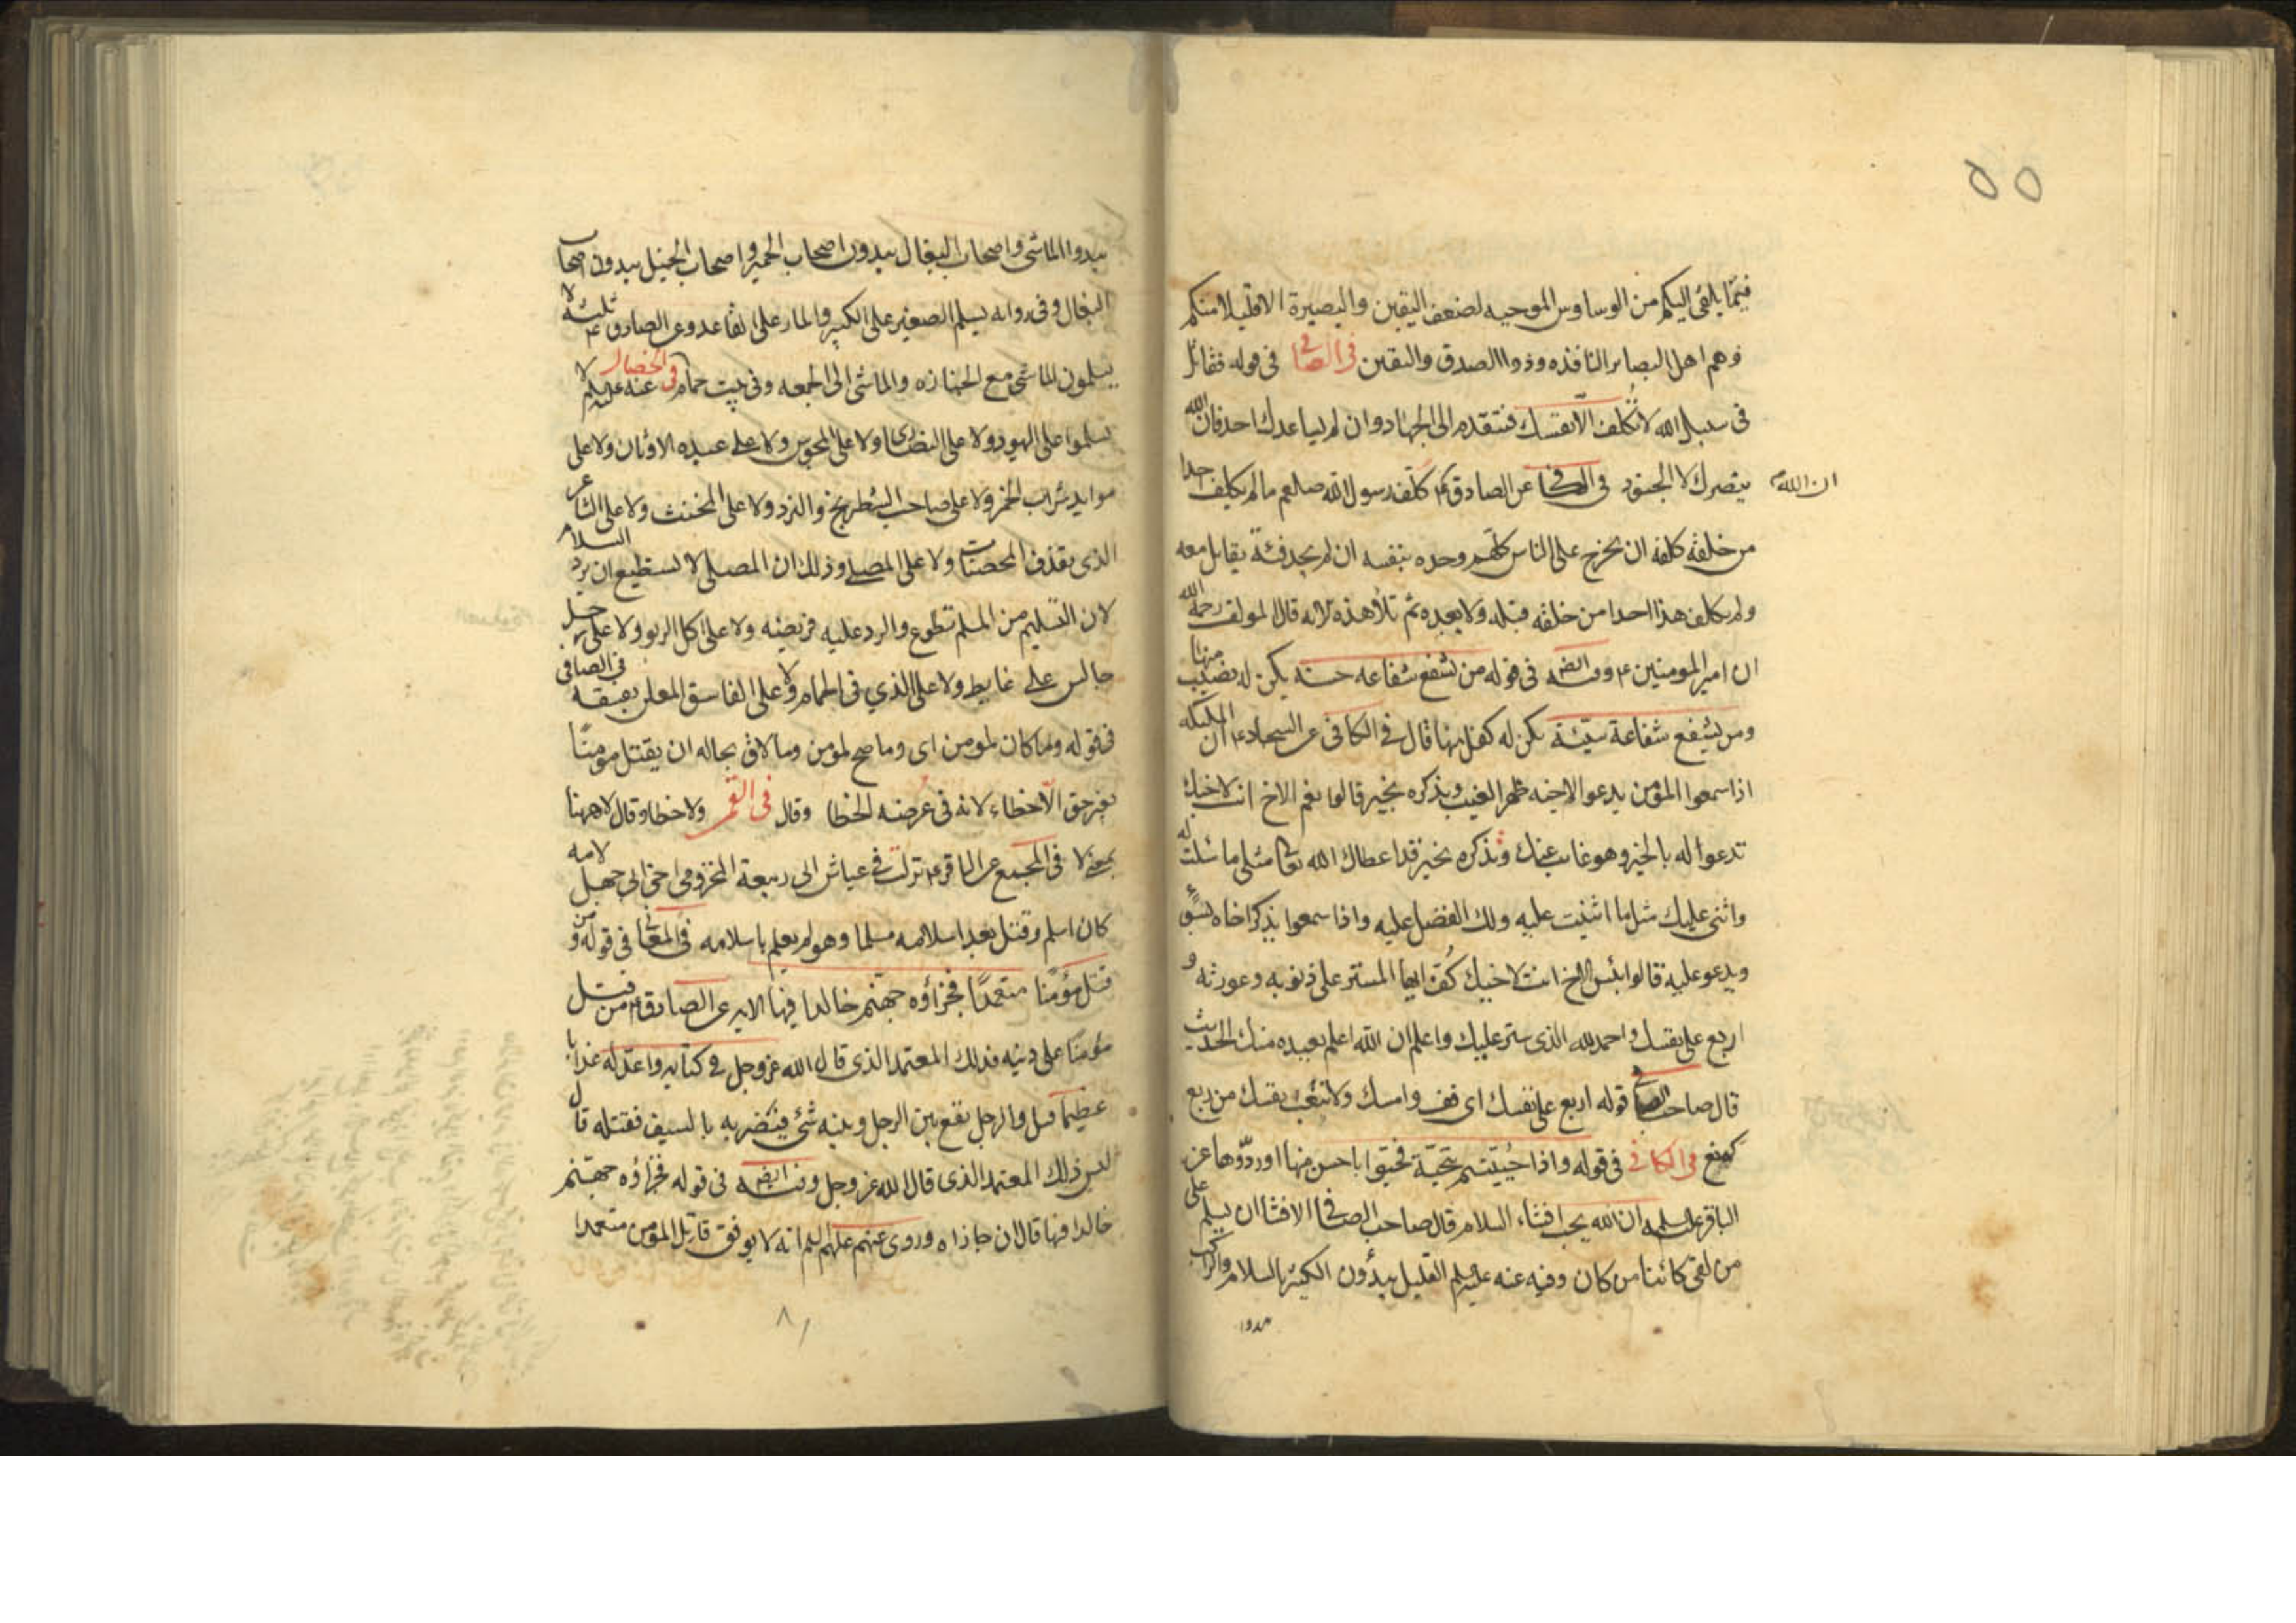 ٥٥
فيما يلقى اليكم من الوساوس الموجبه لضعف اليقين والبصيرة الا قليلا منكم
وهم اهل البصاير النافذه وذووا الصدق واليقين فى الصافى فى قوله فقاتل
فى سبيل الله لا تكلف الا نفسك فتقدم الى الجهاد وان لم يساعدك احد فان الله
ان الله
ينصرك لا الجنود فى الكافى عن الصادق ع كلف رسول الله صلعم ما لم يكلف احدا
من خلقه كلفه ان يخرج على الناس كلهم وحده بنفسه ان لم يجد فئة يقاتل معه
ولم يكلف هذا احدا من خلقه قبله ولا بعده ثم تلا هذه الايه قال المولف رحمه الله
ان امير المومنين ع وفيه ايضا فى قوله من يشفع شفاعه حسنه يكن له نصيب منها
ومن يشفع شفاعة سيئة يكن له كفل منها قال فى الكافى عن السجاد ع ان الملئكه
اذا سمعوا المؤمن يدعو لاخيه بظهر الغيب ويذكره بخير قالوا نعم الاخ انت لاخيك
تدعوا له بالخير وهو غايب عنك وتذكره بخير قد اعطاك الله تعا مثلى ما سئلت له
واثنى عليك مثل ما اثنيت عليه ولك الفضل عليه واذا سمعوا يذكر اخاه بسوء
ويدعو عليه قالوا بئس الاخ انت لاخيك كف ايها المستر على ذنوبه وعورته و
اربع على نفسك واحمد الله الذى ستر عليك واعلم ان الله اعلم بعبده منك الحديث
قال صاحب الصافى قوله اربع على نفسك اى قف وامسك ولا تتعب نفسك من ربع
كمنع فى الكافى فى قوله واذا حييتم بتحية فحيوا باحسن منها او ردوها عن
الباقر عليه السلم ان الله يحب افشاء السلام قال صاحب الصافى الافشا ان يسلم على
من لقى كائنا من كان وفيه عنه عليه السلم القليل يبدؤن الكثير بالسلام والراكب
يبدوا
يبدوا الماشى واصحاب البغال يبدون اصحاب الحمير واصحاب الخيل يبدون اصحاب
البغال وفى روايه يسلم الصغير على الكبير والمار على القاعد وعن الصادق ع ثلثه لا
يسلمون الماشى مع الجنازه والماشى الى الجمعه وفى بيت حمام فى الخصال عنه عليه السلم لا
تسلموا على اليهود ولا على النصارى ولا على المجوس ولا على عبده الاوثان ولا على
موايد شراب الخمر ولا على صاحب الشطرنج والنرد ولا على المخنث ولا على الشاعر
الذى يقذف المحصنات ولا على المصلى وذلك ان المصلى لا يستطيع ان يرد السلام
لان التسليم من المسلم تطوع والرد عليه فريضه ولا على اكل الربو ولا على رجل
جالس على غايط ولا على الذي فى الحمام ولا على الفاسق المعلن بفسقه فى الصافى
فى قوله وما كان لمومن اى وما صح لمؤمن وما لاق بحاله ان يقتل مومنا
بغير حق الا خطاء لانه فى عرضه الخطا وقال فى القمر ولا خطا وقال لا ههنا
بمعنى لا فى المجمع عن الباقر ع نزلت فى عياش ابى ربيعة المخزومى اخى ابى جهل لامه
كان اسلم وقتل بعد اسلامه مسلما وهو لم يعلم باسلامه فى المعانى فى قوله ومن
قتل مؤمنا متعمدا فجزاؤه جهنم خالدا فيها الايه عن الصادق ع من قتل
مؤمنا على دينه فذلك المعتمد الذى قال الله عز وجل فى كتابه واعد له عذابا
عظيما قيل والرجل يقع بين الرجل وبينه شئ فيضربه بالسيف فقتله قال
ليس ذلك المعتمد الذى قال الله عز وجل وفيه ايضا فى قوله فجزاؤه جهنم
خالدا فيها قال ان جازاه وروى عنهم عليهم السلم انه لا يوفق قاتل المؤمن متعمدا
٨١